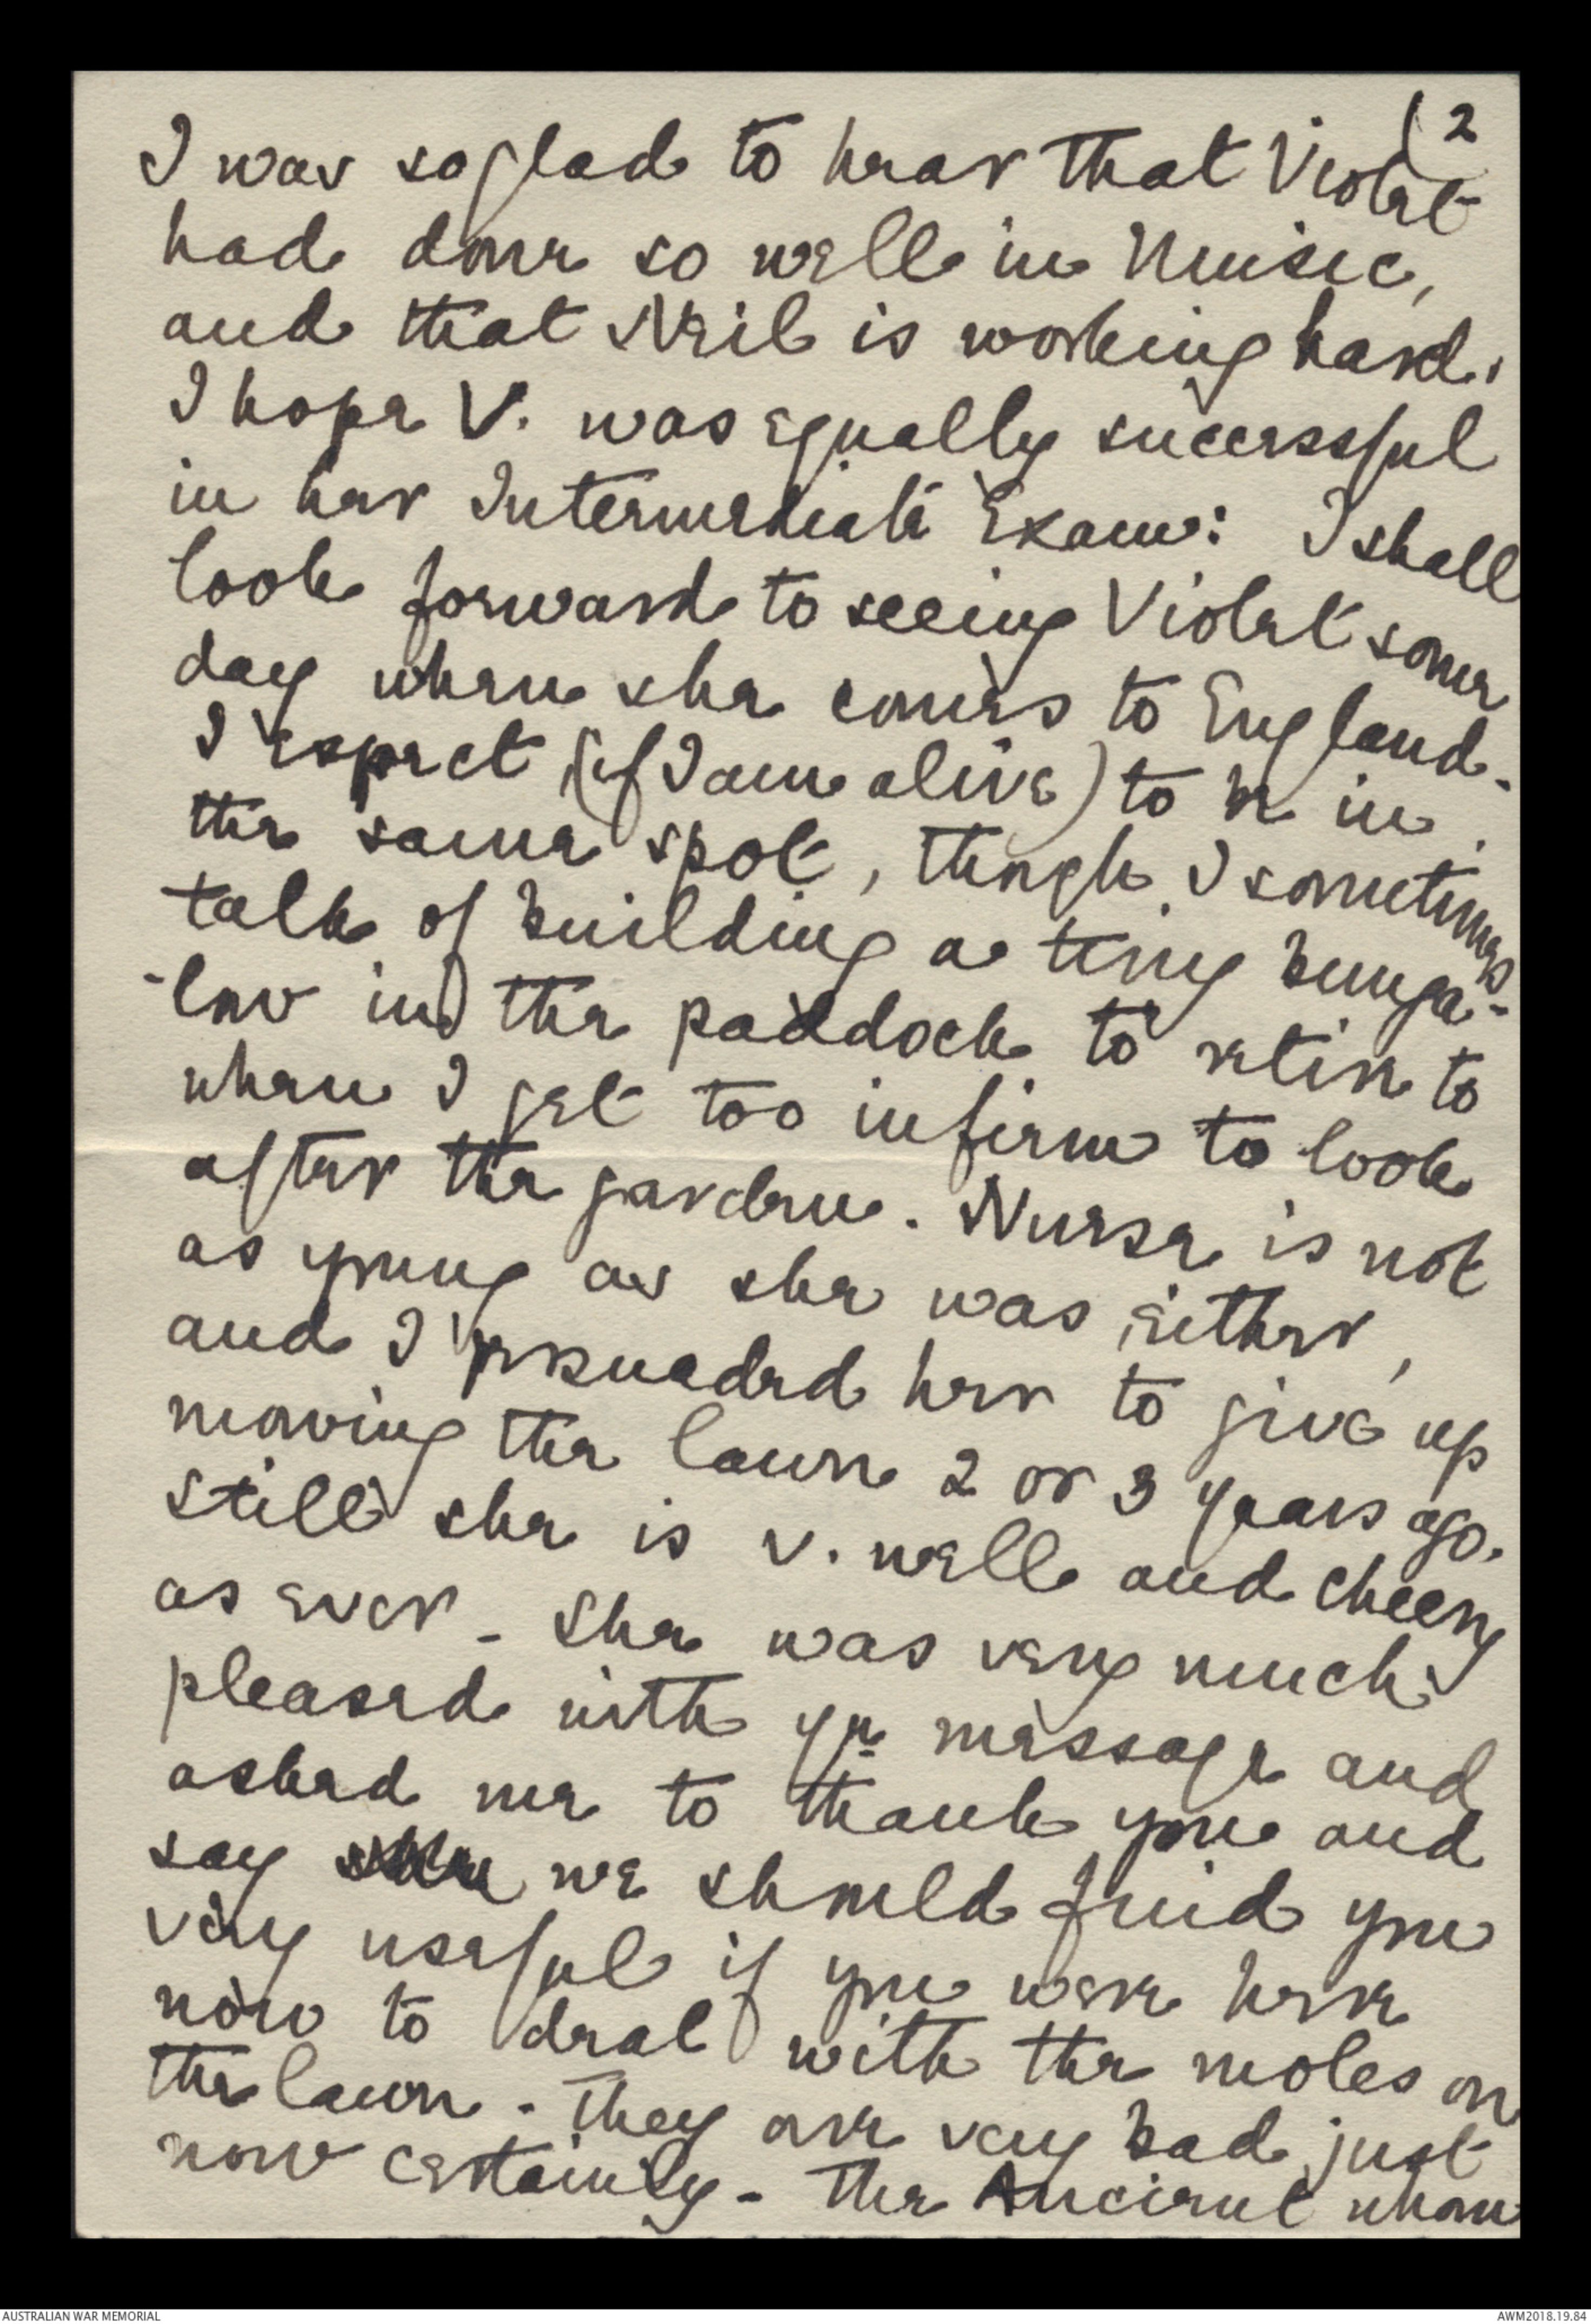 (2
I was so glad to hear that Violet
had done so well in Music,
and that Neil is working hard.
I hope V. was equally successful
in her Intermediate Exam: I shall
look forward to seeing Violet some
day when she comes to England.
I expect (if I am alive) to be in
the same spot, though I sometimes
talk of building a tiny bunga-
-low in the paddock to retire to
when I get too infirm to look
after the garden. Nurse is not
as young as she was, either,
and I persuaded her to give up
mowing the lawn 2 or 3 years ago.
Still she is v. well and cheery
as ever - She was very much
pleased with yr message and
asked me to thank you and
say we should find you
very useful if you were here
now to deal with the moles on
the lawn - They are very bad just
now certainly - The Ancient whom
AUSTRALIAN WAR MEMORIAL
AWM2018.19.84